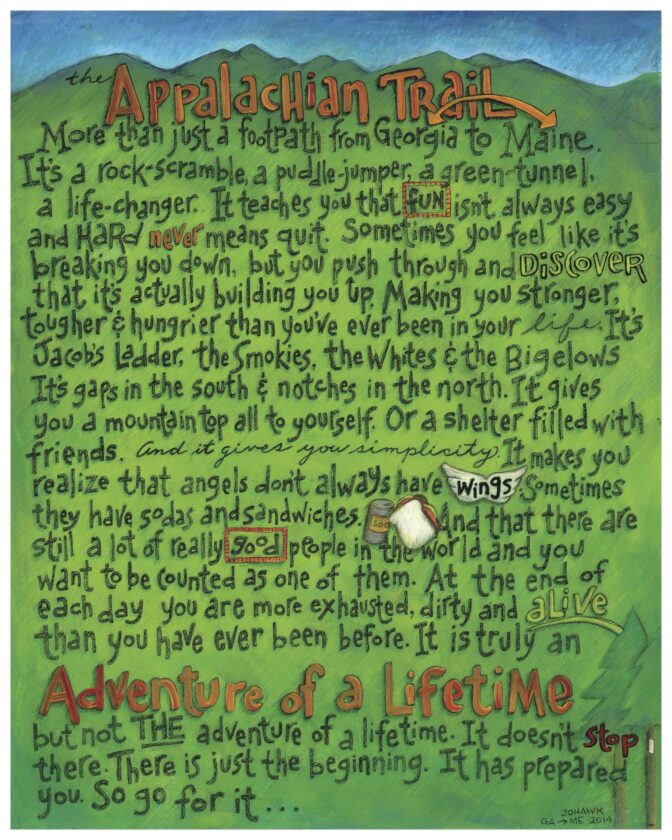 the Appalachian Trail
More than just a footpath from Georgia to Maine.
It's a rock-scramble, a puddle-jumper, a green-tunnel,
a life-changer. It teaches you that fun isn't always easy
and HaRd never means quit. Sometimes you feel like it's
breaking you down, but you push through and DISCOVER
that it's actually building you up. Making you stronger,
tougher & hungrier than you've ever been in your life. It's
Jacob's Ladder, the Smokies, the Whites & the Bigelows
It's gaps in the south & notches in the north. It gives
you a mountain top all to yourself. Or a shelter filled with
friends. And it gives you simplicity. It makes you
realize that angels don't always have wings. Sometimes
they have sodas and sandwiches. SOD And that there are
still a lot of really good people in the world and you
want to be counted as one of them. At the end of
each day you are more exhausted, dirty and aLiVe
than you have ever been before. It is truly an
Adventure of a LifetiMe
but not THE adventure of a lifetime. It doesn't stop
there. There is just the beginning. It has prepared
you. So go for it ...
JOHAWK
GA → ME 2014